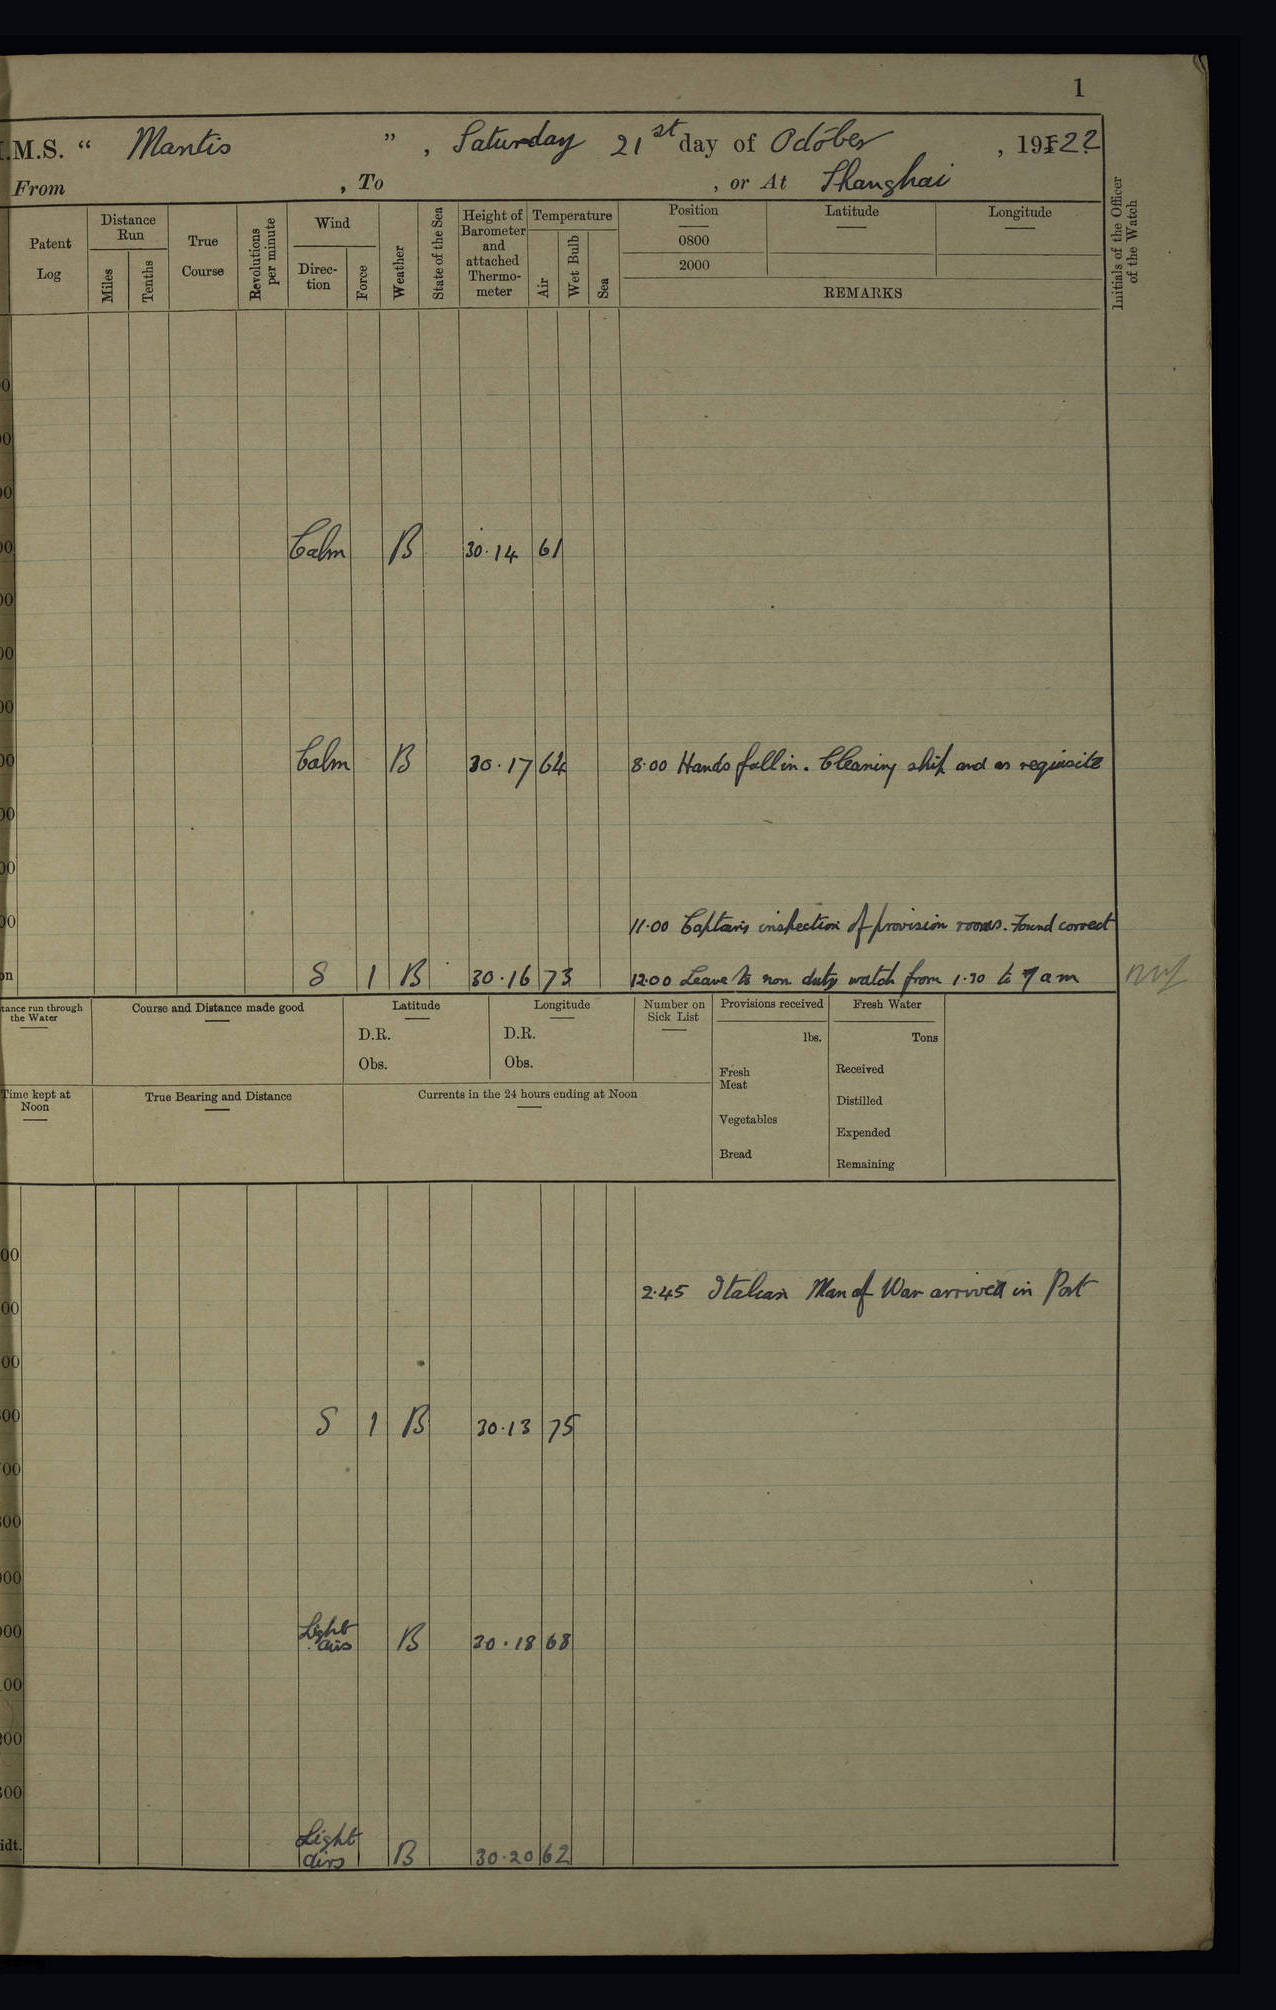 1
.M.S. “ Mantis ” , Saturday 21st day of October , 1922
From , To , or At Shanghai
Patent Log
Distance Run
Miles
Tenths
True Course
Revolutions per minute
Wind
Direc-tion
Force
Weather
State of the Sea
Height of Barometer and attached Thermo-meter
Temperature
Air
Wet Bulb
Sea
Position
0800
2000
Latitude
Longitude
REMARKS
Initials of the Officer of the Watch
Calm B 30.14 61
Calm B 30.17 64 8.00 Hands fall in. Cleaning ship and as requisite
11.00 Captain's inspection of provision rooms. Found correct
S 1 B 30.16 73 12.00 Leave to non duty watch from 1.30 to 7 am
tance run through the Water
Course and Distance made good
Latitude
D.R.
Obs.
Longitude
D.R.
Obs.
Number on Sick List
Provisions received
lbs.
Fresh Meat
Vegetables
Bread
Fresh Water
Tons
Received
Distilled
Expended
Remaining
Time kept at Noon
True Bearing and Distance
Currents in the 24 hours ending at Noon
2.45 Italian Man of War arrived in Port
S 1 B 30.13 75
Light airs B 30.18 68
Light airs B 30.20 62
idt.